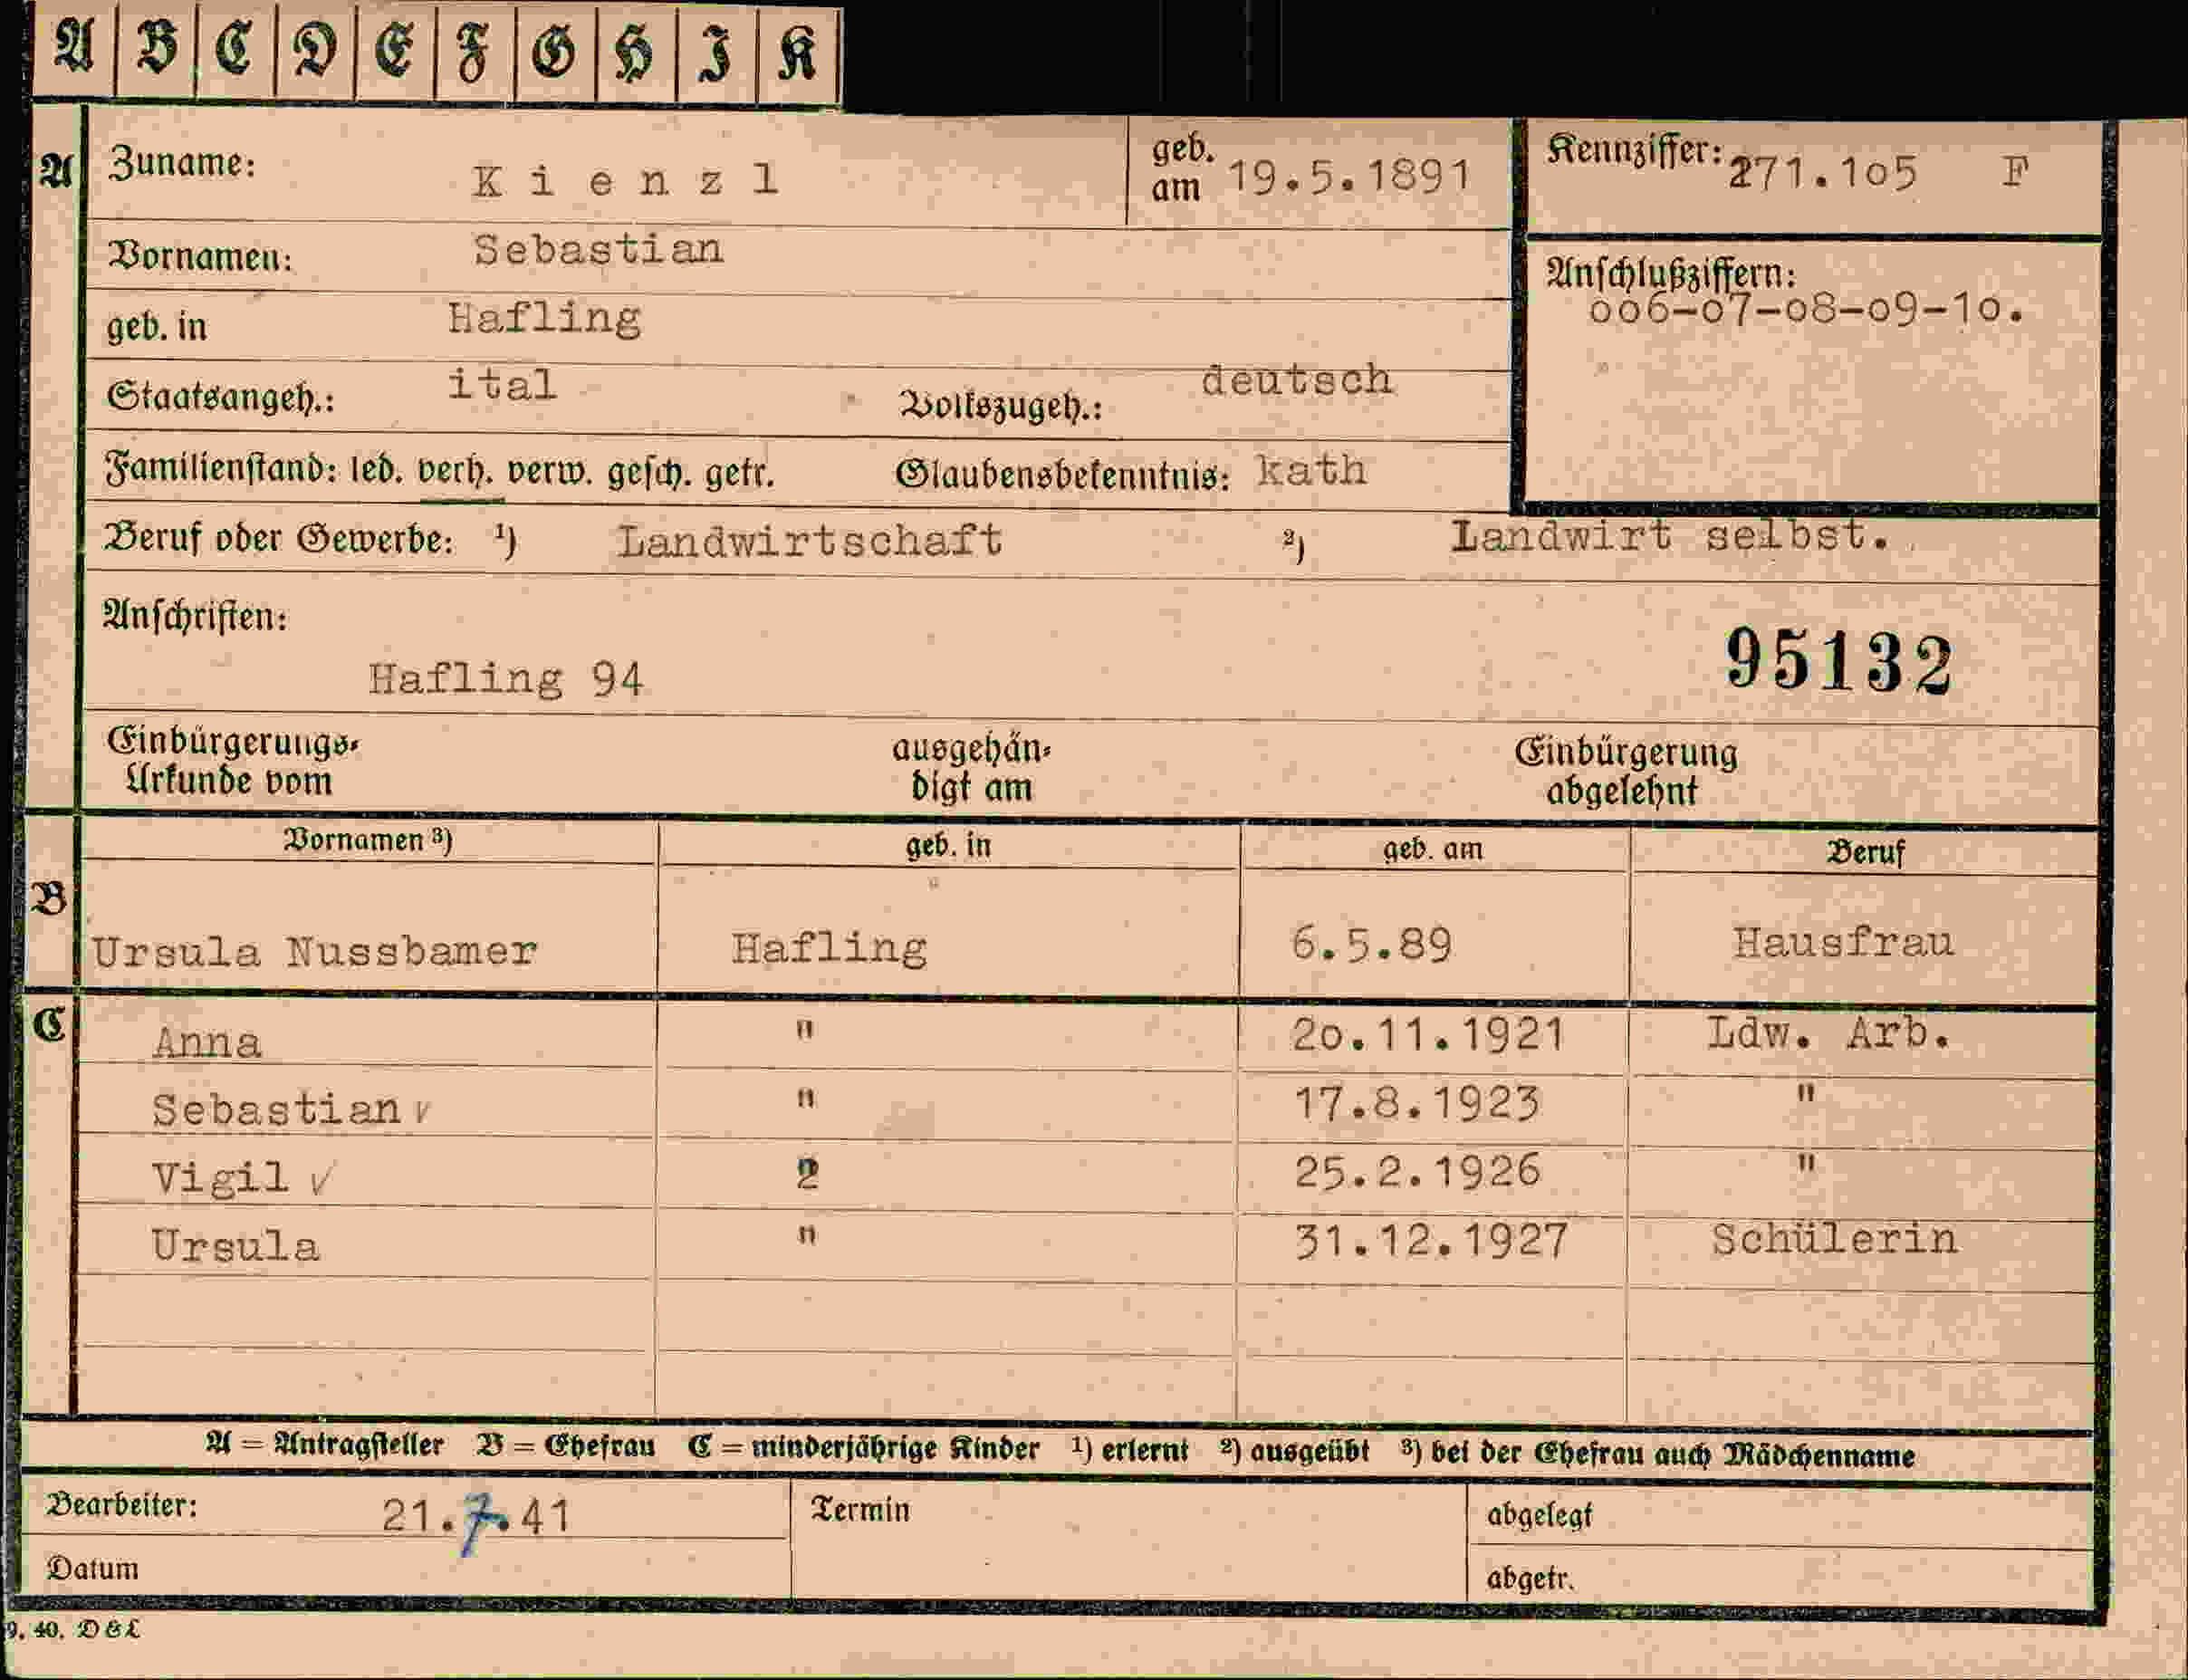 A B C D E F G H I K
A Zuname: Kienzl geb. am 19.5.1891 Kennziffer: 271.1o5 F
Vornamen: Sebastian
Anschlußziffern:
oo6-o7-o8-o9-1o.
geb. in Hafling
Staatsangeh.: ital Volkszugeh.: deutsch
Familienstand: led. verh. verw. gesch. getr. Glaubensbekenntnis: kath
Beruf oder Gewerbe: ¹) Landwirtschaft ²) Landwirt selbst.
Anschriften:
Hafling 94 95132
Einbürgerungs- ausgehän- Einbürgerung
Urkunde vom digt am abgelehnt
Vornamen ³) geb. in geb. am Beruf
B Ursula Nussbamer Hafling 6.5.89 Hausfrau
C Anna " 2o.11.1921 Ldw. Arb.
Sebastian ✓ " 17.8.1923 "
Vigil ✓ 2 25.2.1926 "
Ursula " 31.12.1927 Schülerin
A = Antragsteller B = Ehefrau C = minderjährige Kinder ¹) erlernt ²) ausgeübt ³) bei der Ehefrau auch Mädchenname
Bearbeiter: 21.7.41 Termin abgelegt
Datum abgetr.
9. 40. D & L